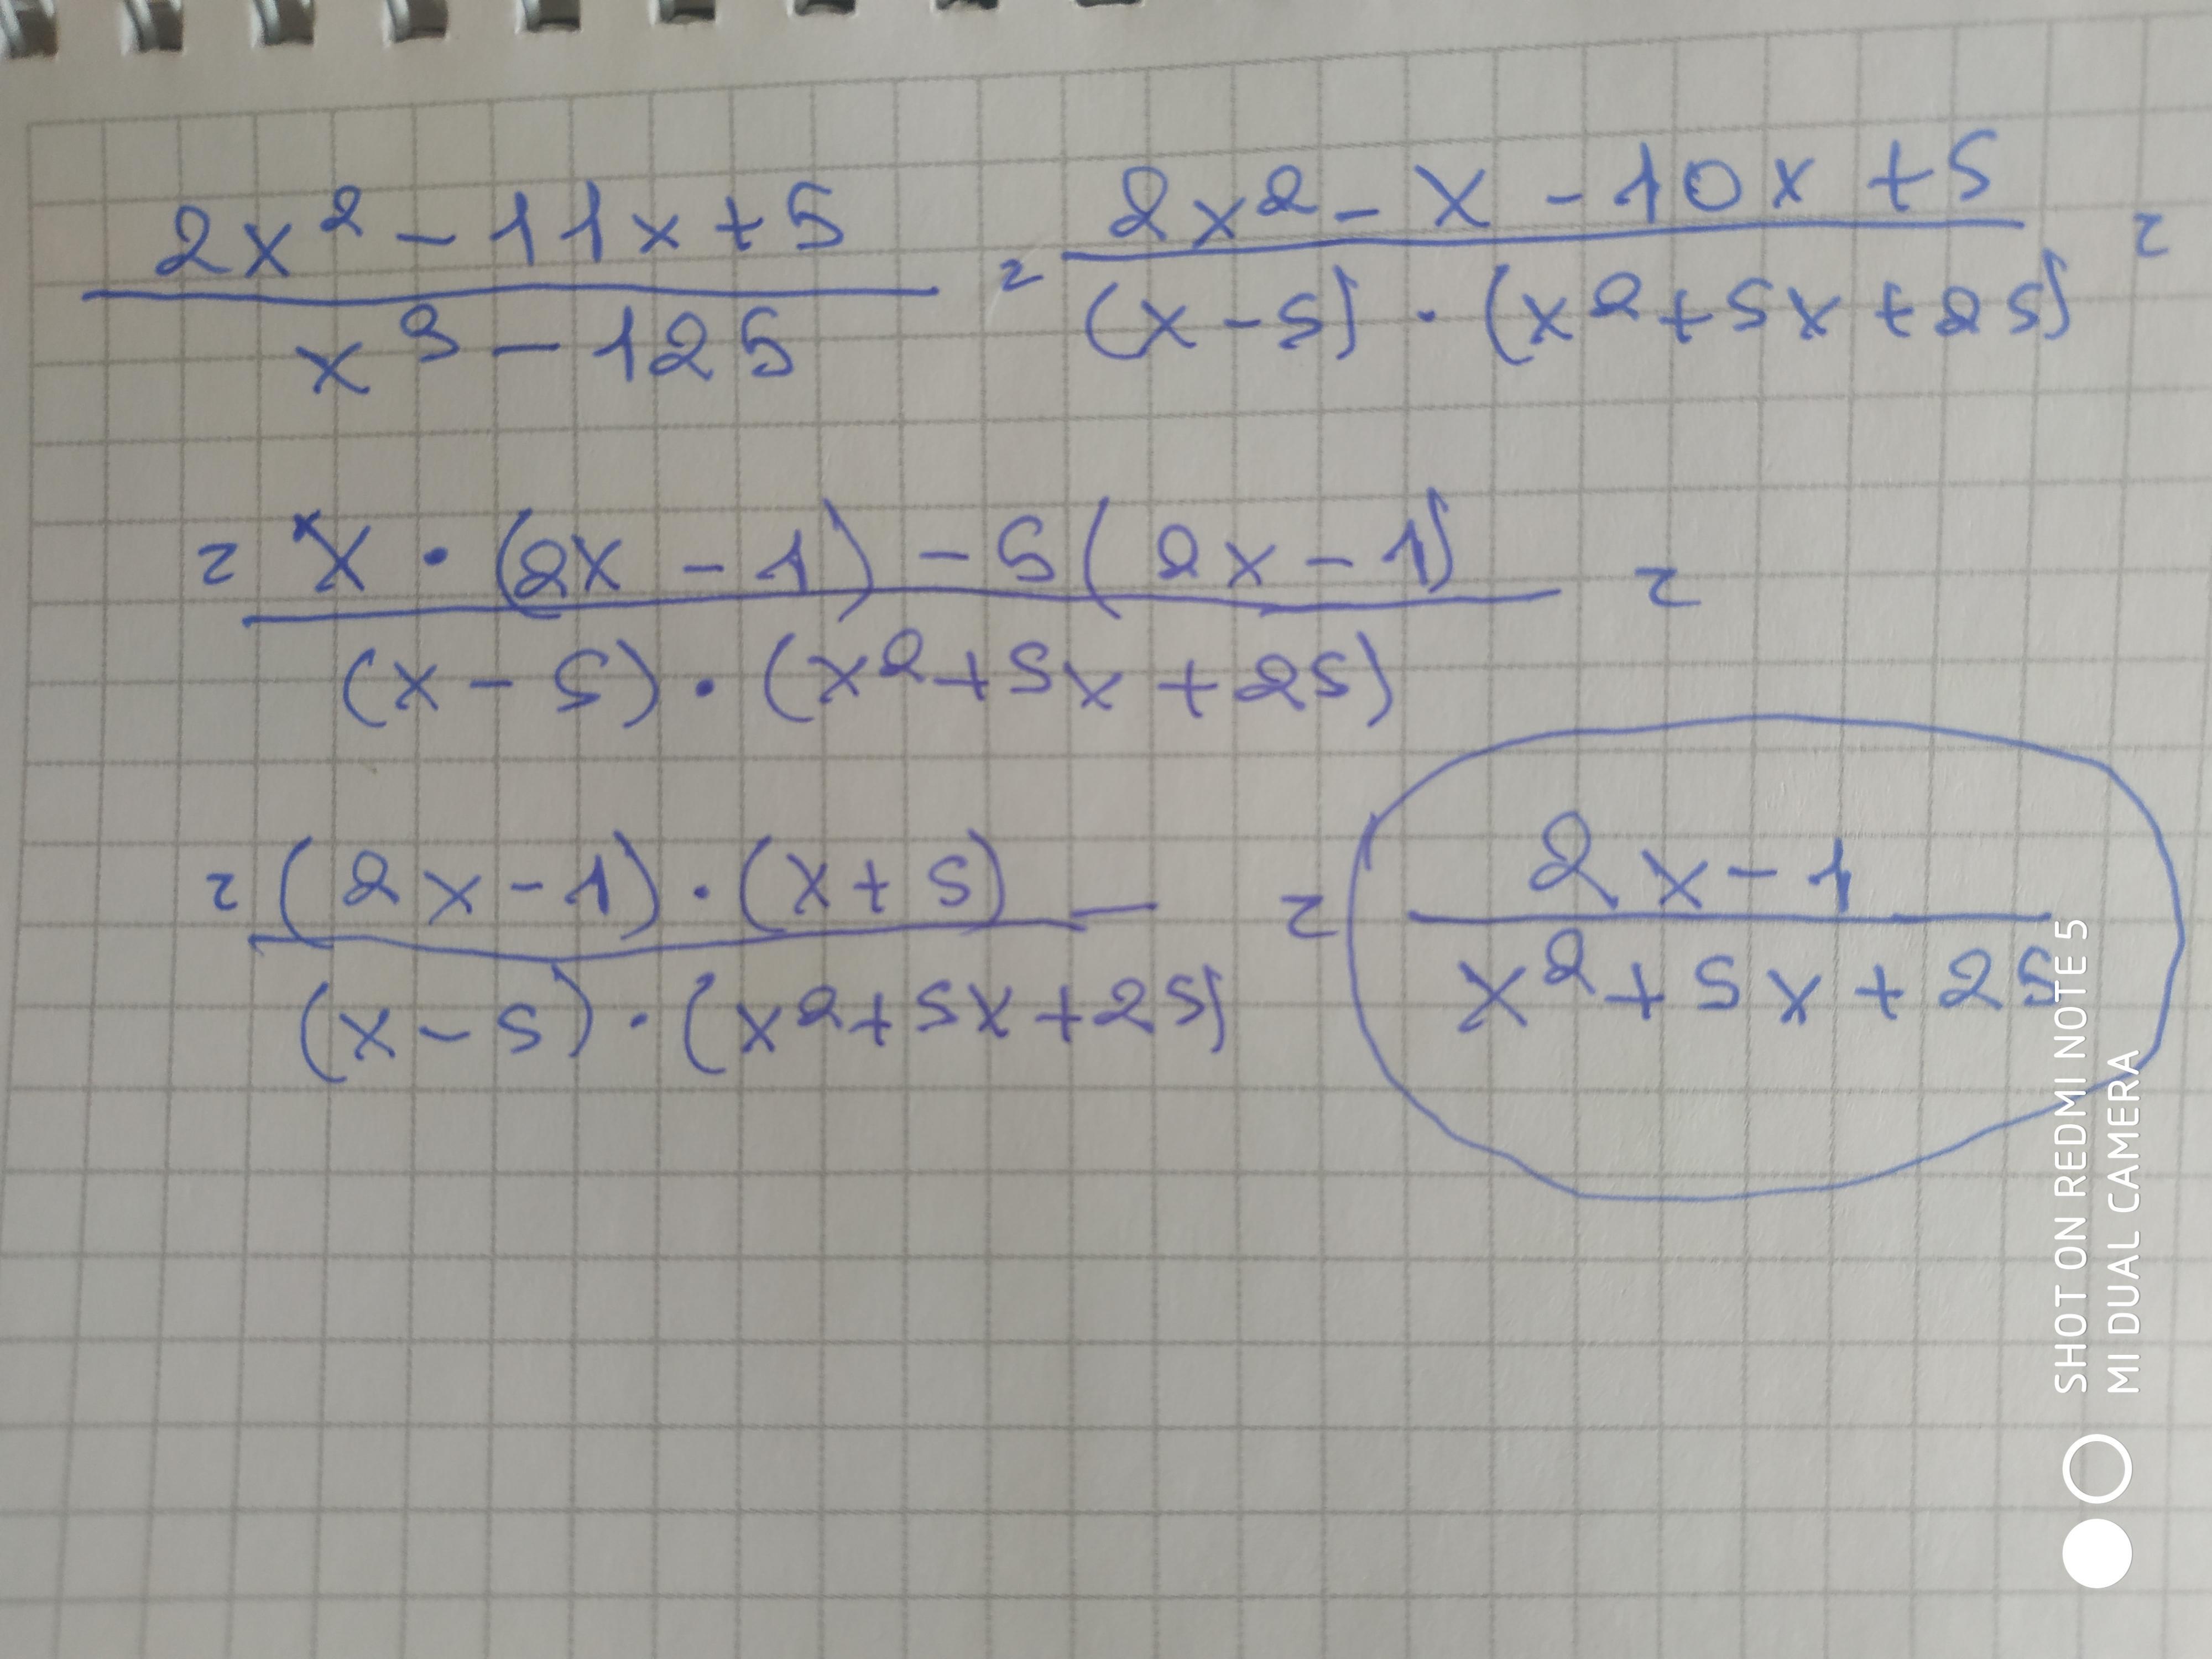 (2x² - 11x + 5)/(x³ - 125) = (2x² - x - 10x + 5)/((x - 5) · (x² + 5x + 25)) =
= (x · (2x - 1) - 5(2x - 1))/((x - 5) · (x² + 5x + 25)) =
= ((2x - 1) · (x + 5))/((x - 5) · (x² + 5x + 25)) = (2x - 1)/(x² + 5x + 25)
SHOT ON REDMI NOTE 5
MI DUAL CAMERA